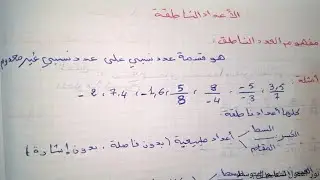 الأعداد الناطقة
مفهوم العدد الناطق:
هو قسمة عدد نسبي على عدد نسبي غير معدوم
أمثلة: 3,5/2 ، -5/-3 ، 8/-4 ، 5/8 ، -1,6 ، 7,4 ، -2
كلها أعداد ناطقة
الكسر البسط المقام أعداد طبيعية (بدون فاصلة، بدون إشارة)